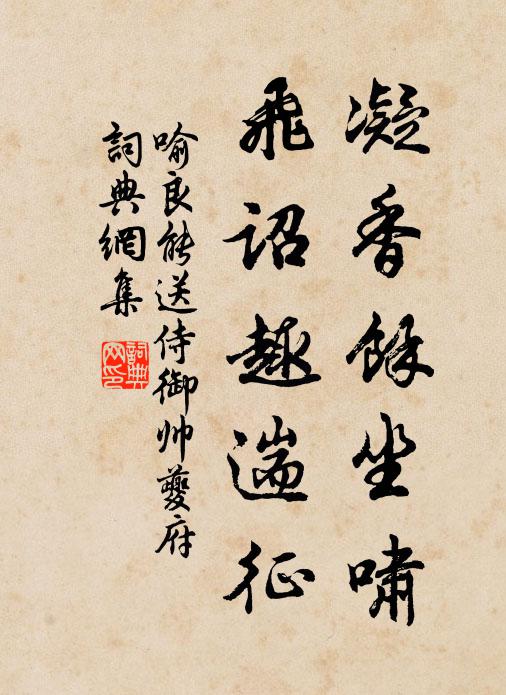 凝香餘坐嘯
飛詔趣遄征
喻良能送侍御帅夔府
詞典網集
詞典网印